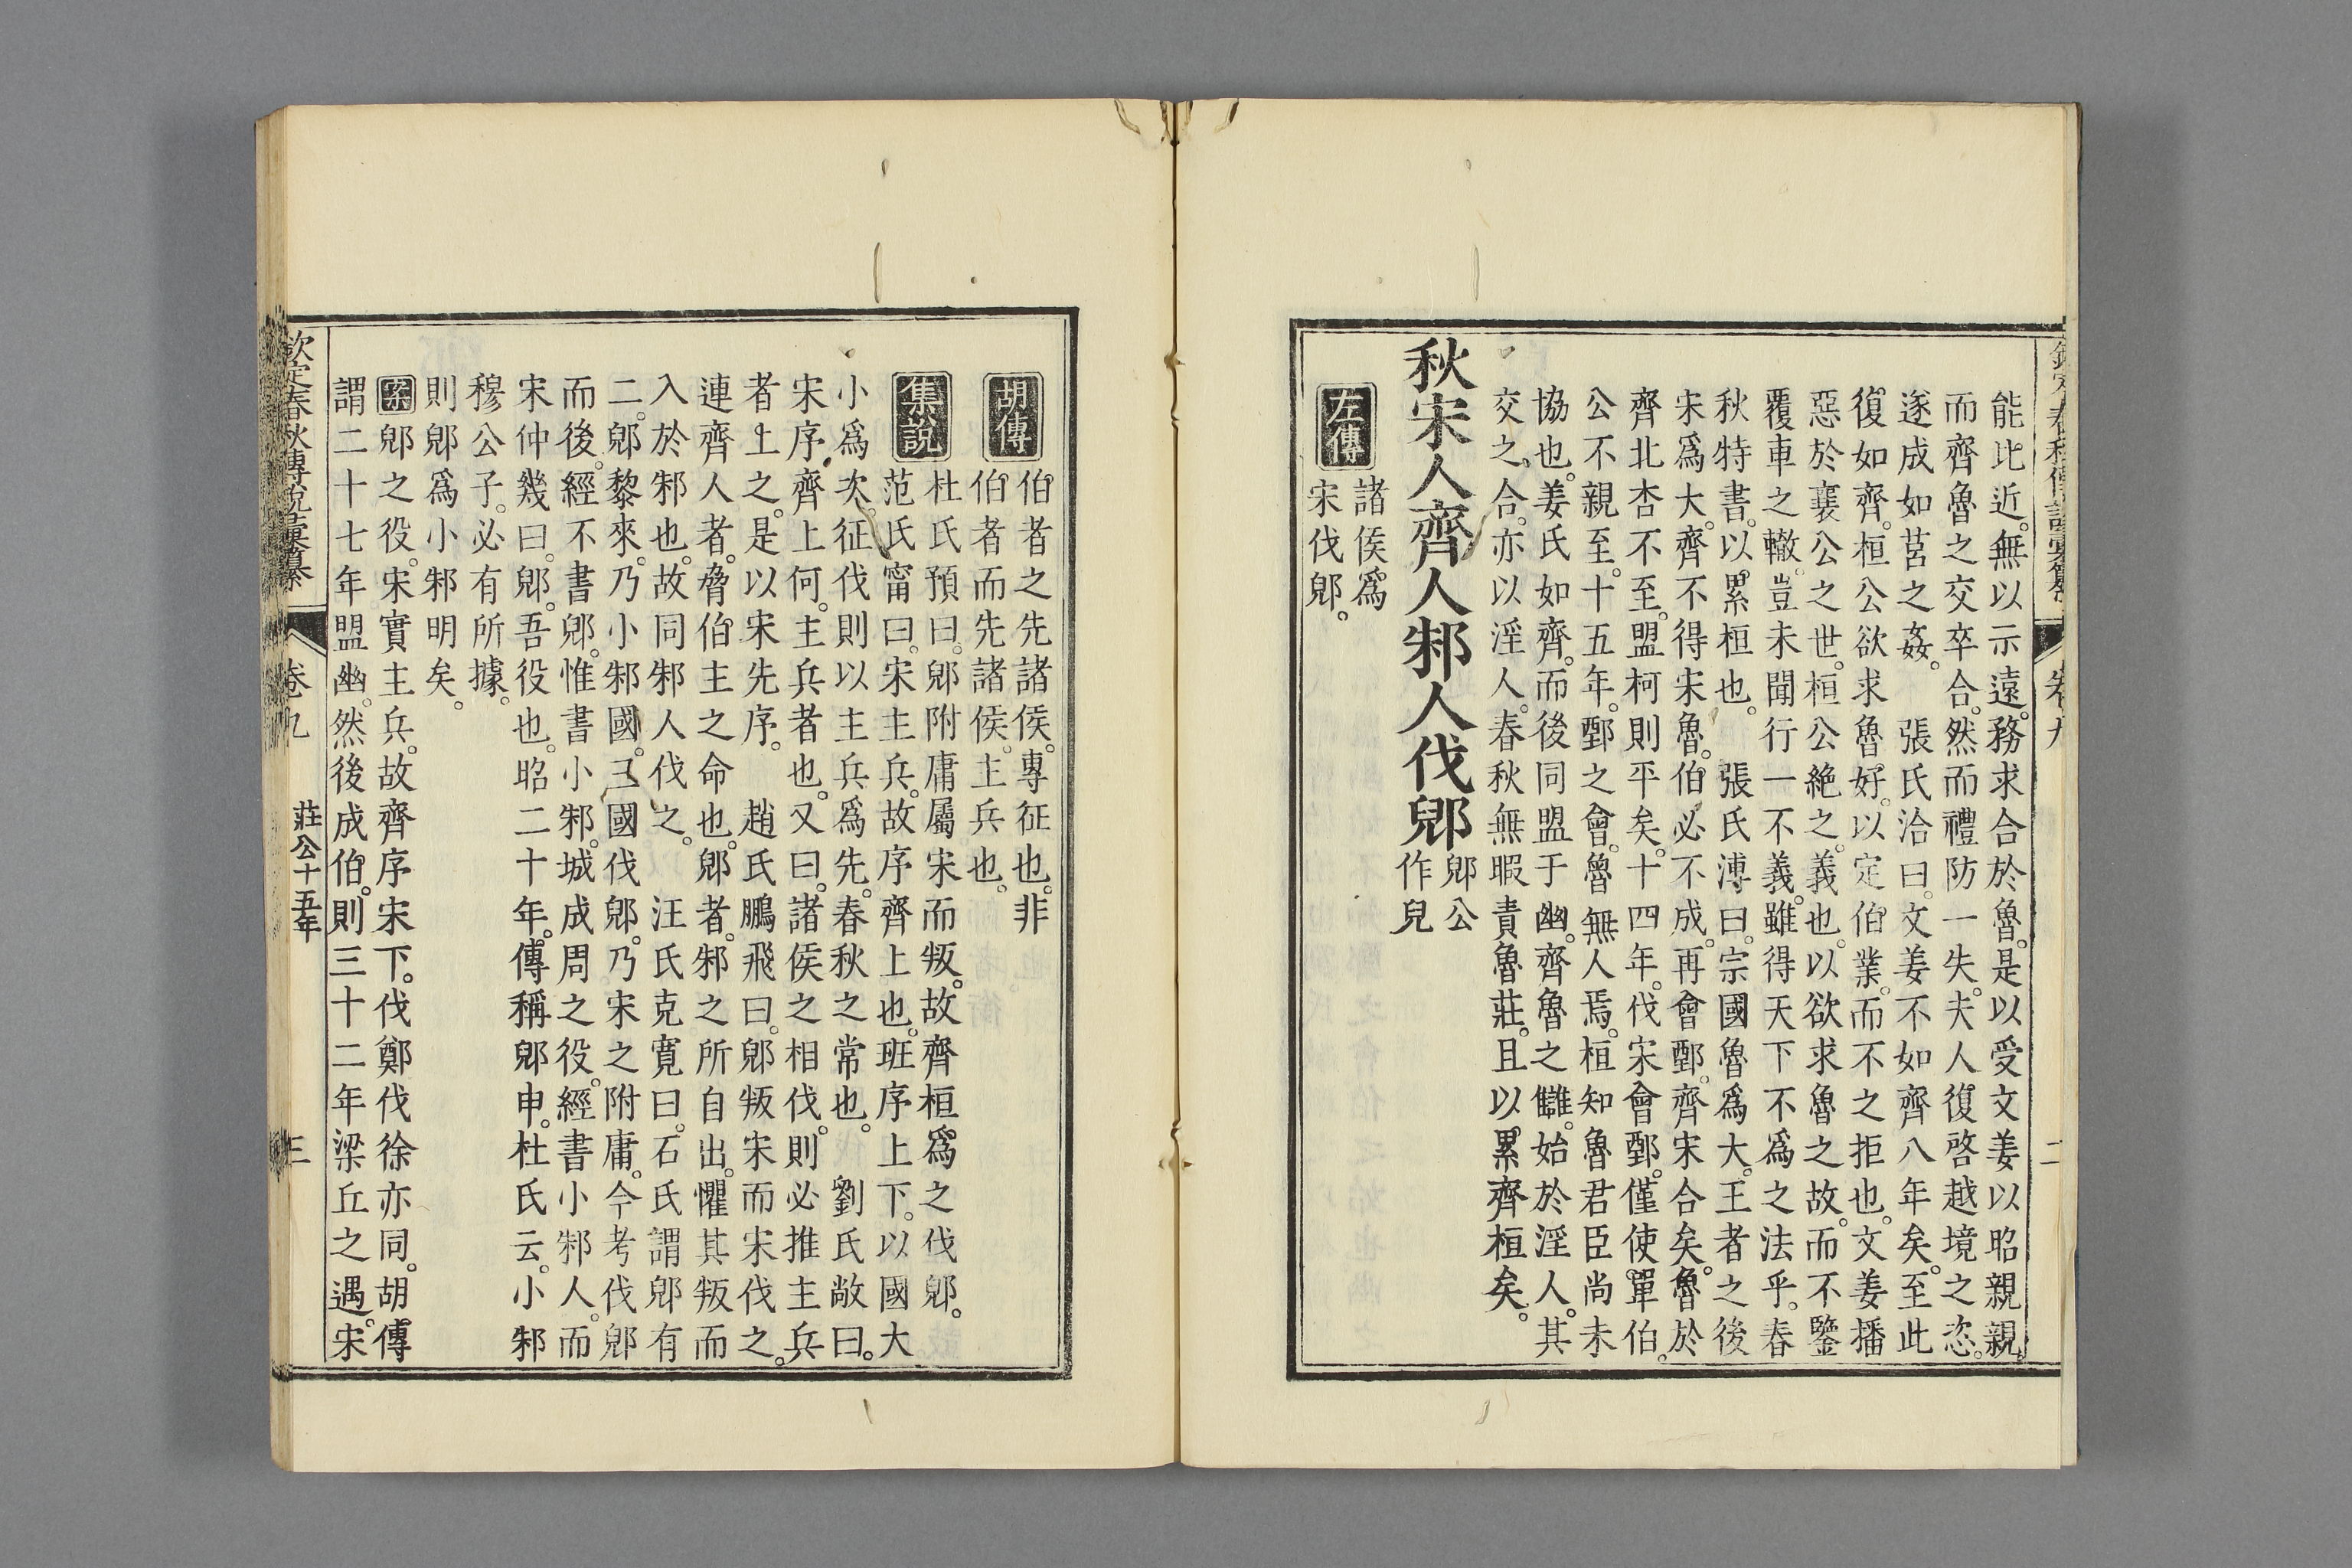 欽定春秋傳說彙纂 卷九 二
能比近。無以示遠。務求合於魯。是以受文姜以昭親親。
而齊魯之交卒合。然而禮防一失。夫人復啓越境之恣。
遂成如莒之姦。 張氏洽曰。文姜不如齊八年矣。至此
復如齊。桓公欲求魯好。以定伯業。而不之拒也。文姜播
惡於襄公之世。桓公絕之。義也。以欲求魯之故。而不鑒
覆車之轍。豈未聞行一不義。雖得天下不爲之法乎。春
秋特書。以累桓也。 張氏溥曰。宗國魯爲大。王者之後
宋爲大。齊不得宋魯。伯必不成。再會鄄。齊宋合矣。魯於
齊北杏不至。盟柯則平矣。十四年。伐宋會鄄。僅使單伯。
公不親至。十五年。鄄之會。魯無人焉。桓知魯君臣尚未
協也。姜氏如齊。而後同盟于幽。齊魯之讎。始於淫人。其
交之合。亦以淫人。春秋無暇責魯莊。且以累齊桓矣。
秋宋人齊人邾人伐郳
郳公
作兒
左傳
諸侯爲
宋伐郳。
胡傳
伯者之先諸侯。專征也。非
伯者而先諸侯。主兵也。
集說
杜氏預曰。郳附庸屬宋而叛。故齊桓爲之伐郳。
范氏甯曰。宋主兵。故序齊上也。班序上下。以國大
小爲次。征伐則以主兵爲先。春秋之常也。 劉氏敞曰。
宋序齊上何。主兵者也。又曰。諸侯之相伐。則必推主兵
者上之。是以宋先序。 趙氏鵬飛曰。郳叛宋而宋伐之。
連齊人者。脅伯主之命也。郳者。邾之所自出。懼其叛而
入於邾也。故同邾人伐之。 汪氏克寬曰。石氏謂郳有
二。郳黎來。乃小邾國。三國伐郳。乃宋之附庸。今考伐郳
而後。經不書郳。惟書小邾。城成周之役。經書小邾人。而
宋仲幾曰。郳。吾役也。昭二十年。傳稱郳申。杜氏云。小邾
穆公子。必有所據。
則郳爲小邾明矣。
案郳之役。宋實主兵。故齊序宋下。伐鄭伐徐亦同。胡傳
謂二十七年盟幽。然後成伯。則三十二年梁丘之遇。宋
欽定春秋傳說彙纂 卷九 莊公十五年 三